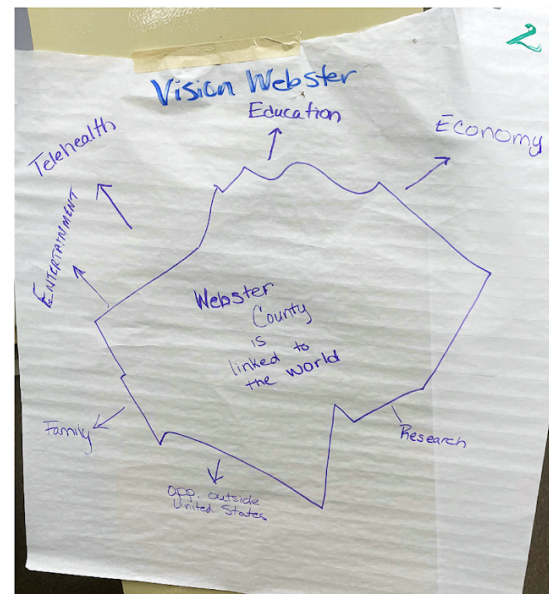 2
Vision Webster
Education
Economy
Telehealth
ENTERTAINMENT
Webster
County
is
linked to
the world
Family
Research
opp. outside
United States